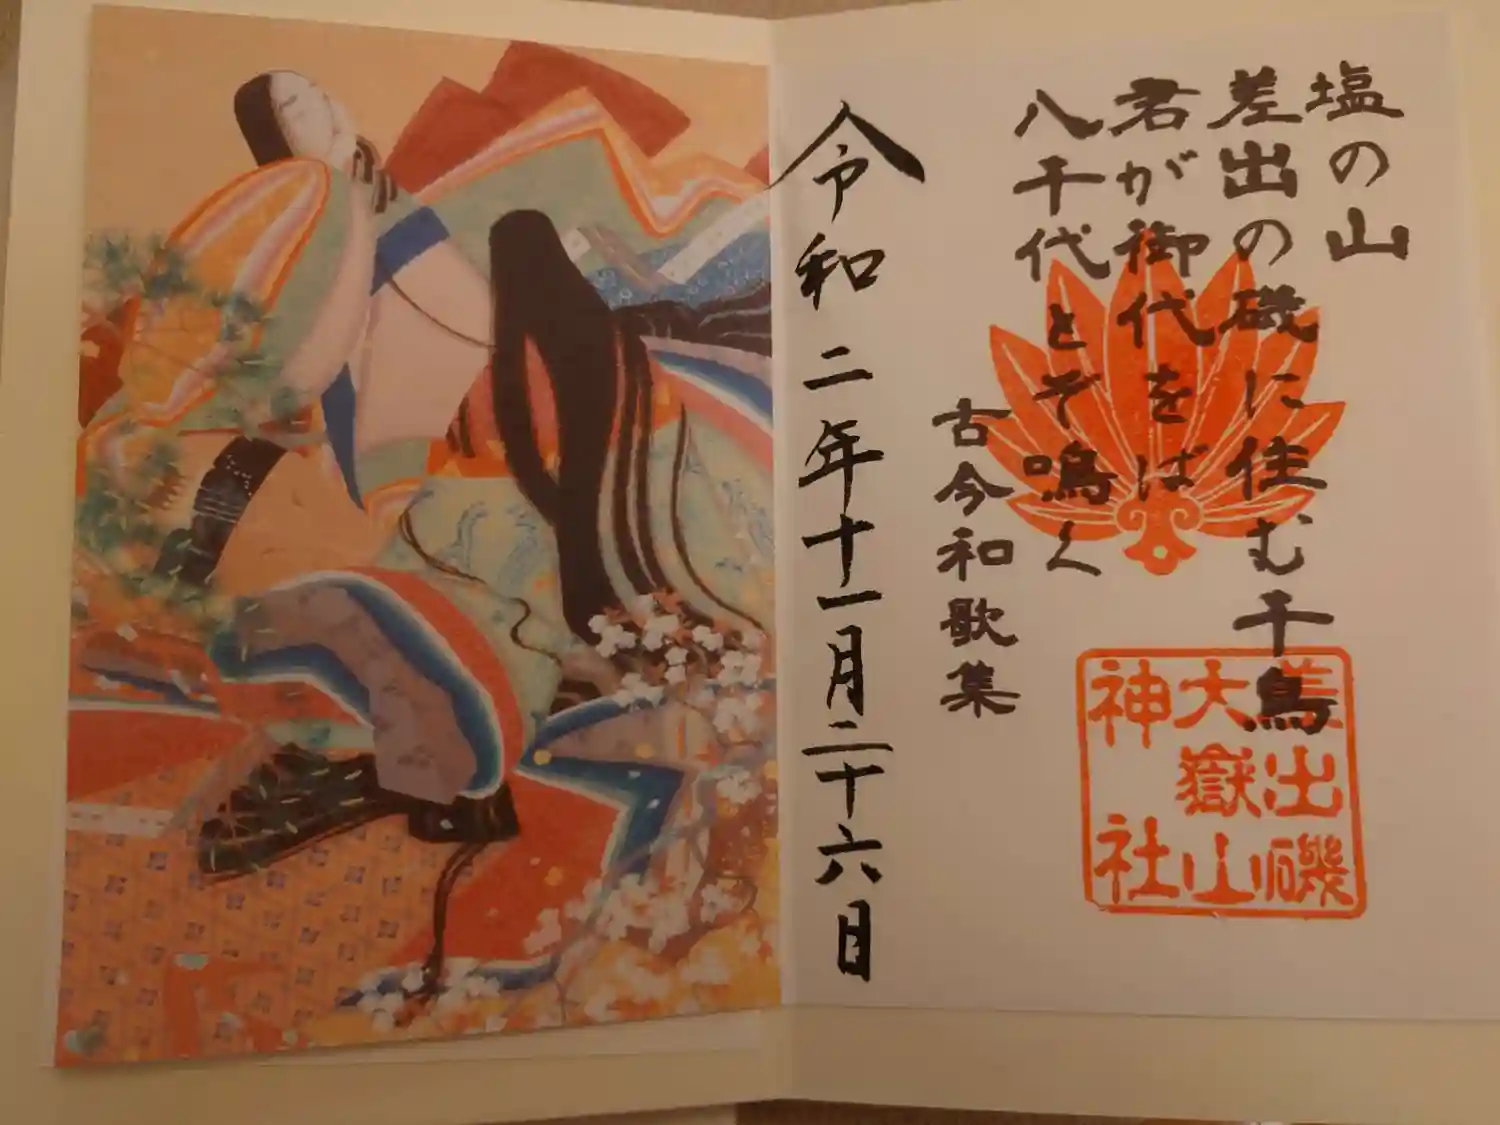 塩の山
差出の磯に住む千鳥
君が御代をば
八千代とぞ鳴く
古今和歌集
令和二年十一月二十六日
差出磯
大嶽山
神社